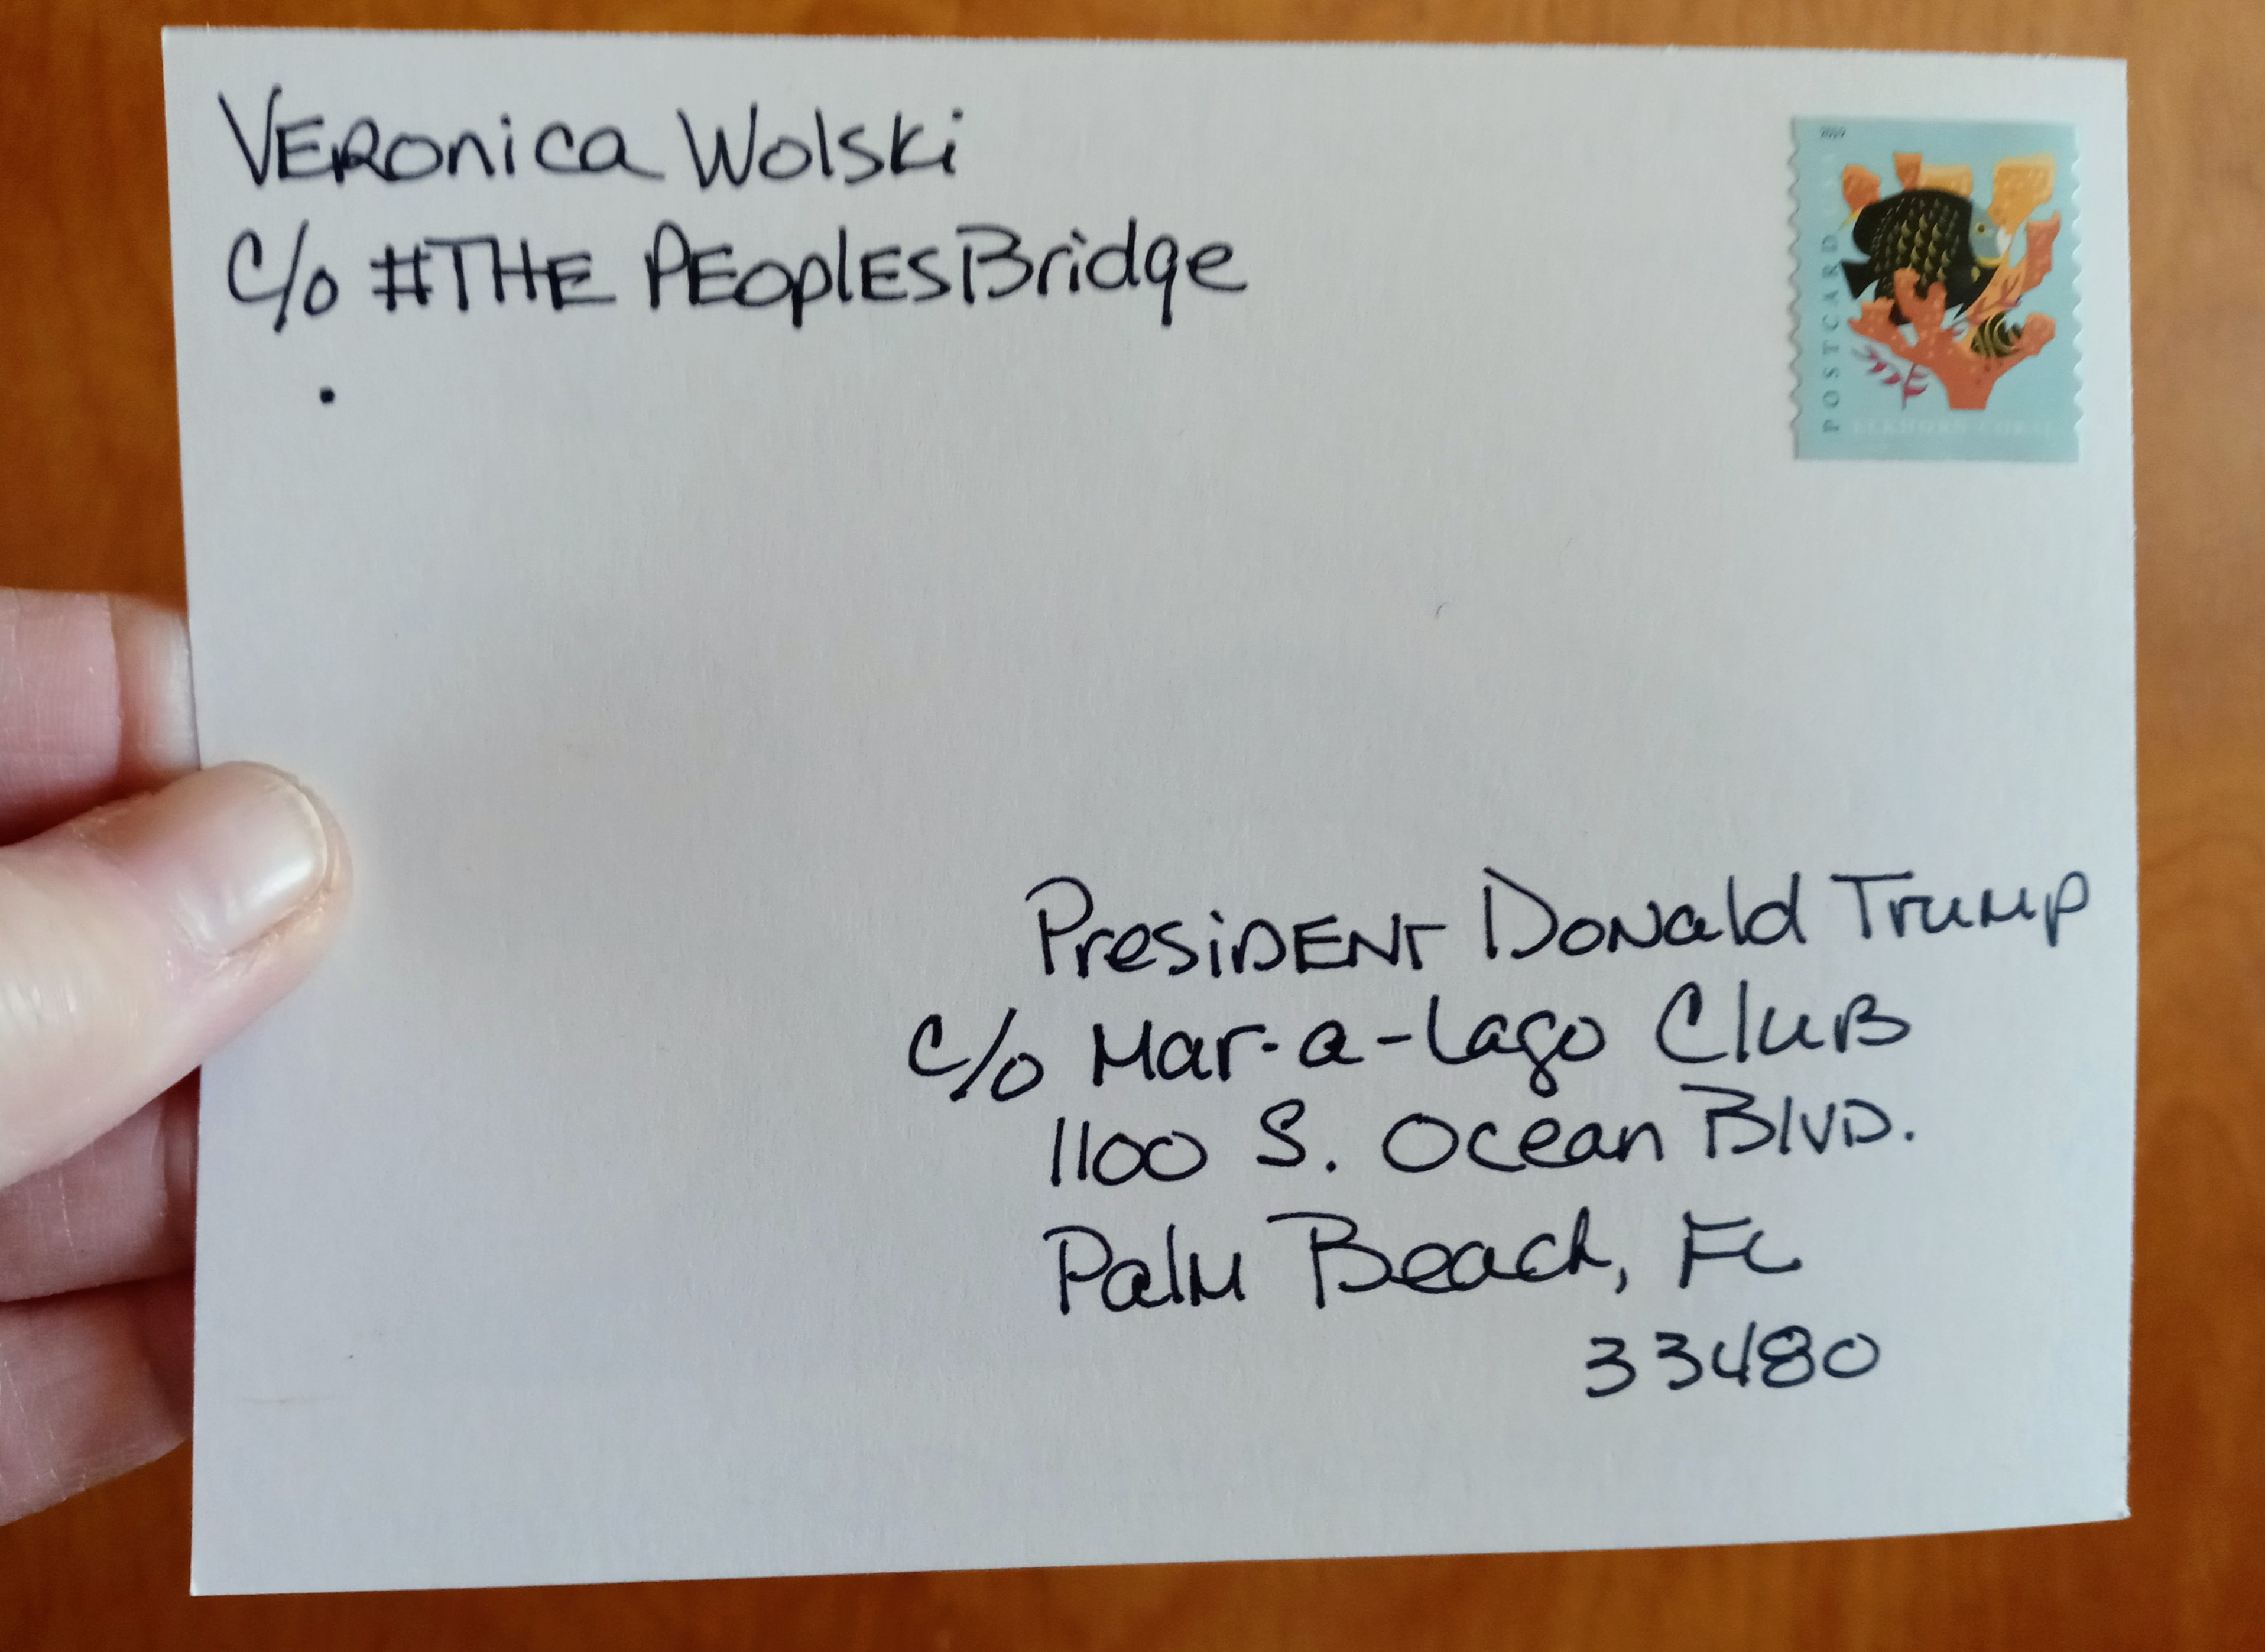 VERonica Wolski
c/o #THE PEoplESBridge
2019
POSTCARD
ELKHORN CORAL
PresiDENT DoNald Trump
c/o Mar-a-Lago CluB
1100 S. Ocean BlVD.
Palm Beach, FL
33480